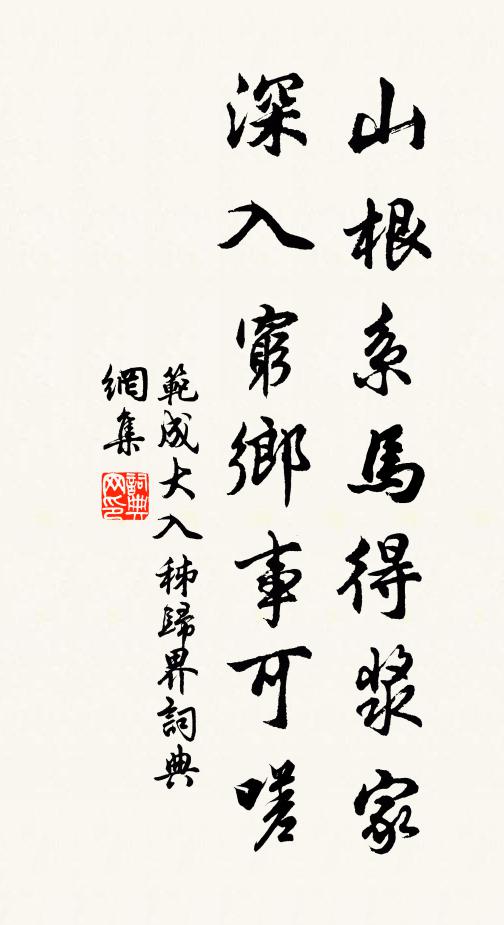 山根系馬得漿家
深入窮鄉事可嗟
範成大入秭歸界詞典
網集
詞典
网印